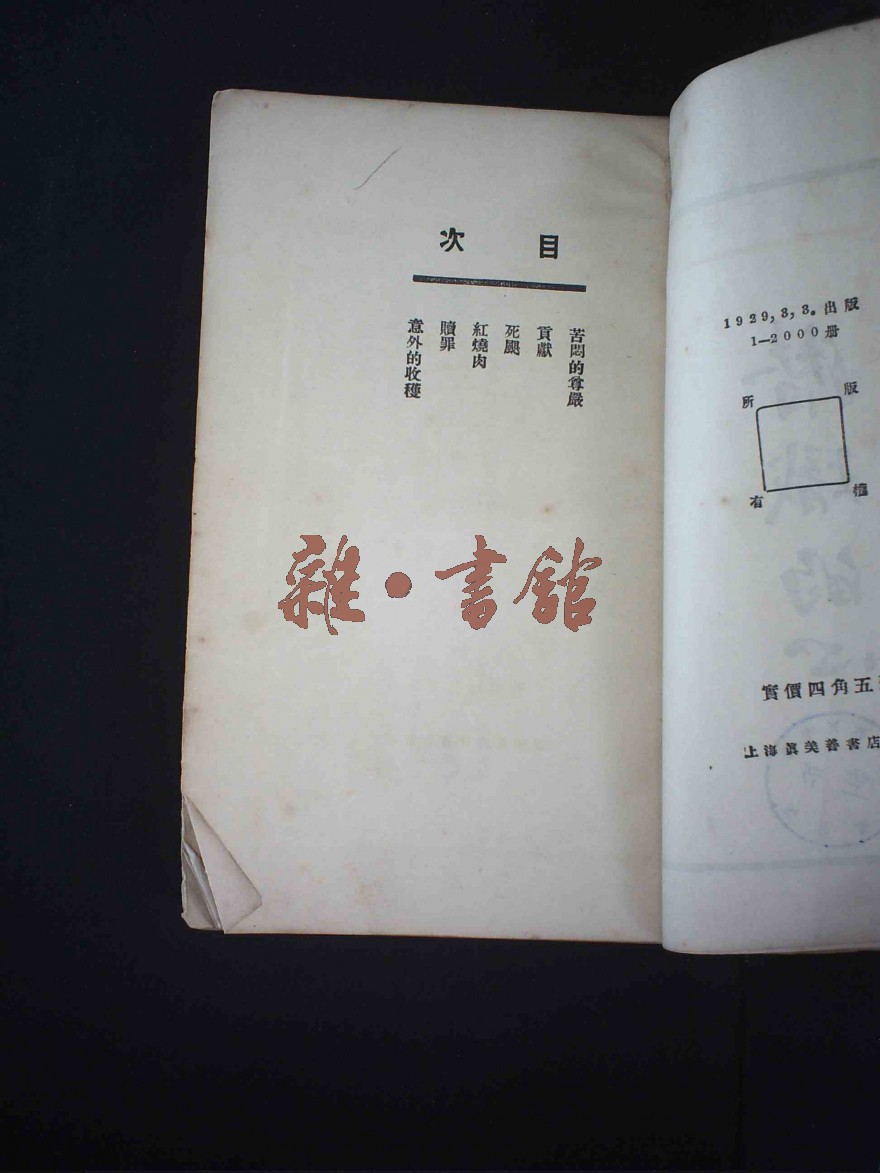 目次
苦悶的尊嚴
貢獻
死颶
紅燒肉
贖罪
意外的收穫
雜•書館
1929,3,3。出版
1—2000册
版權所有
實價四角五
上海眞美善書店